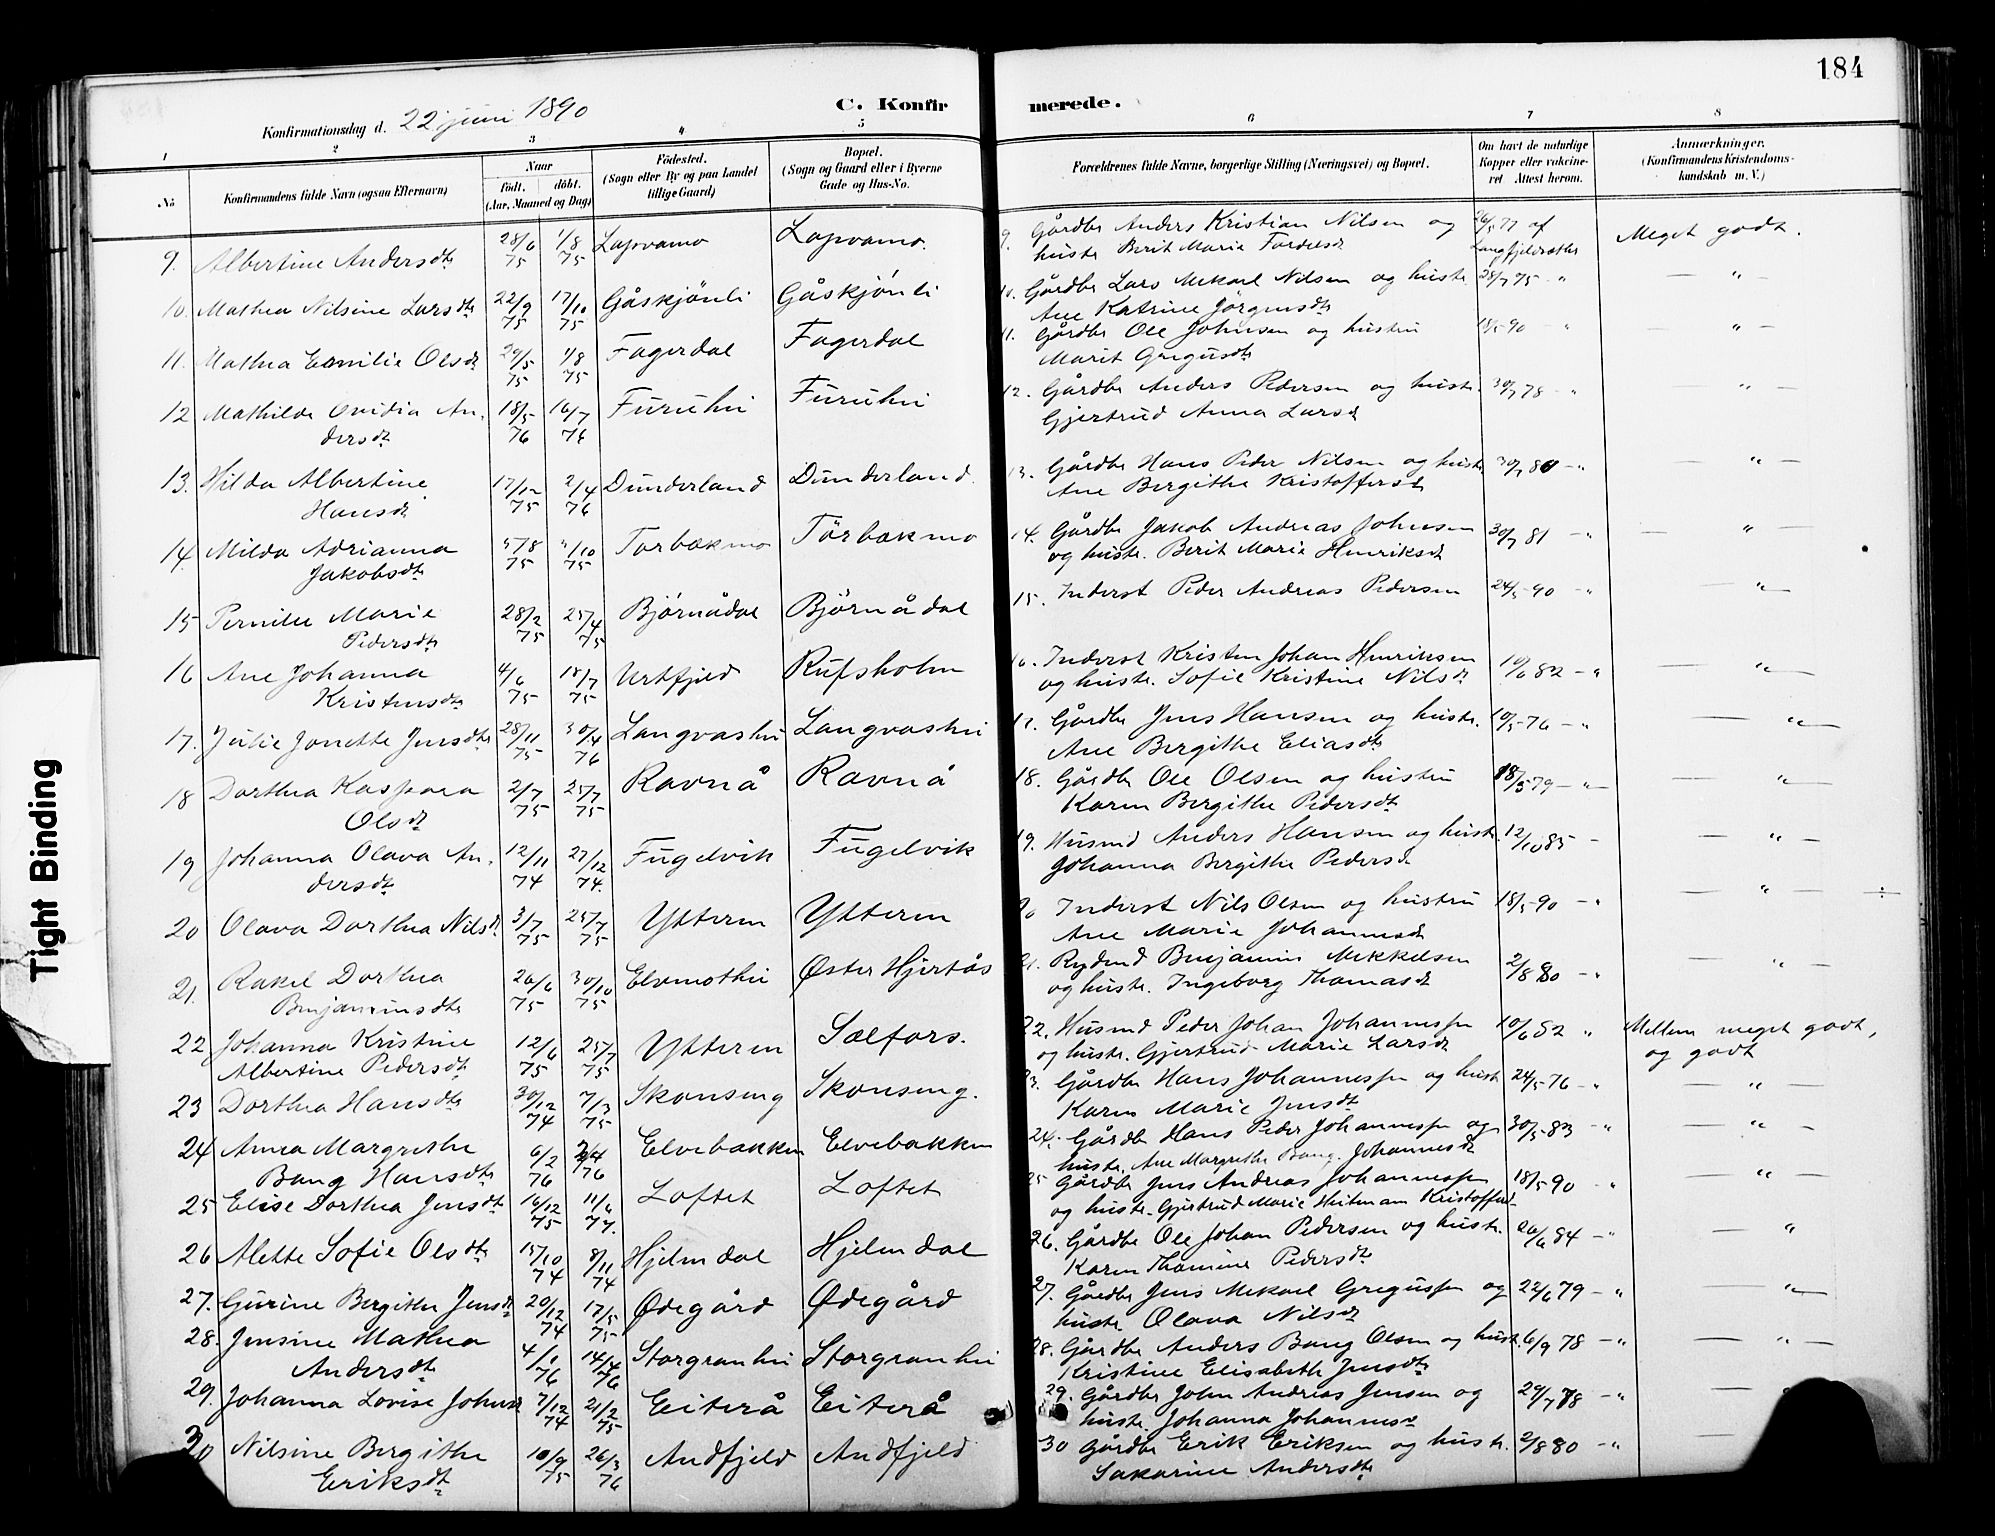 184
C. Konfirmerede.
Konfirmationsdag d. 22 juni 1890
1 2 3 4 5 6 7 8
No
Konfirmandens fulde Navn (ogsaa Efternavn)
Naar
født. døbt.
(Aar, Maaned og Dag)
Fødested.
(Sogn eller By og paa Landet
tillige Gaard)
Bopæl.
(Sogn og Gaard eller i Byerne
Gade og Hus-No.
Forældrenes fulde Navne, borgerlige Stilling (Næringsvei) og Bopæl.
Om havt de naturlige
Kopper eller vakcine-
ret Attest herom.
Anmærkninger.
(Konfirmandens Kristendoms-
kundskab m. V.)
9. Albertine Andersdtr 28/6 75 1/8 75 Lapvamo Lapvamo. 9. Gårdbr Anders Kristian Nilsen og 26/5 77 af Meget godt.
hustr Berit Marie
10. Mathea Nilsine Larsdtr 22/9 75 17/10 75 Gåskjönli Gåskjónli 10. Gårdbr Lars Mekael Nilsen og hustr 28/7 75 "
Ane Katrine Jörgensdtr
11. Mathea Emilie Olsdt 29/5 75 1/8 75 Fagerdal Fagerdal 11. Gårdbr Ole Johnsen og hustru 18/5 90 "
Marit Gregusdtr
12 Mathilde Ovidia An- 18/5 76 16/7 76 Furuhei Furuhei 12. Gårdbr Anders Pedersen og hustr. 30/7 78 "
dersdt Gjertrud Anna Larsdt
13. Hilda Albertine 17/12 75 2/4 76 Dunderland Dunderland. 13. Gårdbr Hans Peder Nilsen og hustr "
Hansdt Ane Bergithe Kristoffersdt
14. Milda Adrianna Torbækmo Törbækmo 14. Gårdbr Jakob Andreas Johnsen 30/7 81 "
Jakobsdtr og hustr. Berit Marie Henriksdt
15 Pernille Marie 28/2 75 25/4 75 Bjórnådal Björnådal 15. Inderst Peder Andreas Pedersen 24/5 90 "
Pedersdtr
16 Ane Johanna 4/6 75 18/7 75 Urtfjeld Rufsholm 16. Inderst Kristen Johan Henriksen 10/6 82 "
Kristensdtr og hustr. Sofie Kristine Nilsdt
17. Julie Jonette Jensdtr 28/11 75 30/4 76 Langvashei Langvashei 17. Gårdbr Jens Hansen og hustr. 10/5 76 "
Ane Bergithe Eliasdtr
18 Dorthea Kaspara 2/7 75 25/7 75 Ravnå Ravnå 18. Gårdbr Ole Olsen og hustru 18/5 79 "
Olsdt Karen Bergithe Pedersdt
19 Johanna Olava An- 12/11 74 27/12 74. Fugelvik Fugelvik 19. Husmd Anders Hansen og hustr. 12/10 85 "
dersdt Johanna Bergithe Pedersdt
20 Olava Dorthea Nilsdt 3/7 75 25/7 75 Ytteren Ytteren 20 Inderst Nils Olsen og hustru 18/5 90 "
Ane Marie Johannesdt
21. Rakel Dorthea 26/6 75 30/10 75 Elvemothei Øster Hjertås 21. Rydmd Benjamin Mekkelsen 2/8 80 "
Benjaminsdtr og hustr. Ingeborg Thomasdt
22 Johanna Kristine 12/6 75 25/7 75 Ytteren Selfors. 22. Husmd Peder Johan Johannessen 10/6 82 " Mellem meget godt,
Albertine Pedersdt og hustr. Gjertrud Marie Larsdt og godt
23 Dorthea Hansdtr 30/12 74 7/3 75 Skonseng Skonseng. 23. Gårdbr Hans Johannessen og hustr 24/5 76 "
Karen Marie Jensdt
24 Anna Margrethe 6/2 76 76 Elvebakken Elvebakken 24. Gårdbr Hans Peder Johannessen og 30/5 83 "
Bang Hansdtr hustr. Ane Margrethe Bang. Johannesdt
25 Elise Dorthea Jensdt 16/12 75 Loftet Loftet 25 Gårdbr Jens Andreas Johannessen 18/5 90 "
og hustr. Gjertrud Marie Heitman
26 Alette Sofie Olsdtr 15/10 74 8/11 74 Hjelmdal Hjelmdal 26. Gårdbr Ole Johan Pedersen og hustr. 26/6 84 "
Karen Thomine Pedersdt
27. Gurine Bergithe Jensdt 20/12 74 17/5 75 Ødegård Ødegård 27. Gårdbr Jens Mekael Gregussen og 22/6 79 "
hustr. Olava Nilsdt
28. Jensine Mathea 4/1 76 14/4 76 Storgranhei Storgranhei 28. Gårdbr Anders Bang Olsen og hustr. 6/9 78 "
Andersdt Kristine Elisabeth Jensdtr
29. Johanna Lovise Johnsdt 7/12 74 21/2 75 Eiterå Eiterå 29. Gårdbr John Andreas Jensen og 29/7 78 "
hustr. Johanna Johannesdt
30 Nilsine Bergithe 10/9 75 26/3 76 Andfjeld Andfjeld 30 Gårdbr Erik Eriksen og hustr. 2/8 80 "
Eriksdt Sakarine Andersdtr
Tight Binding